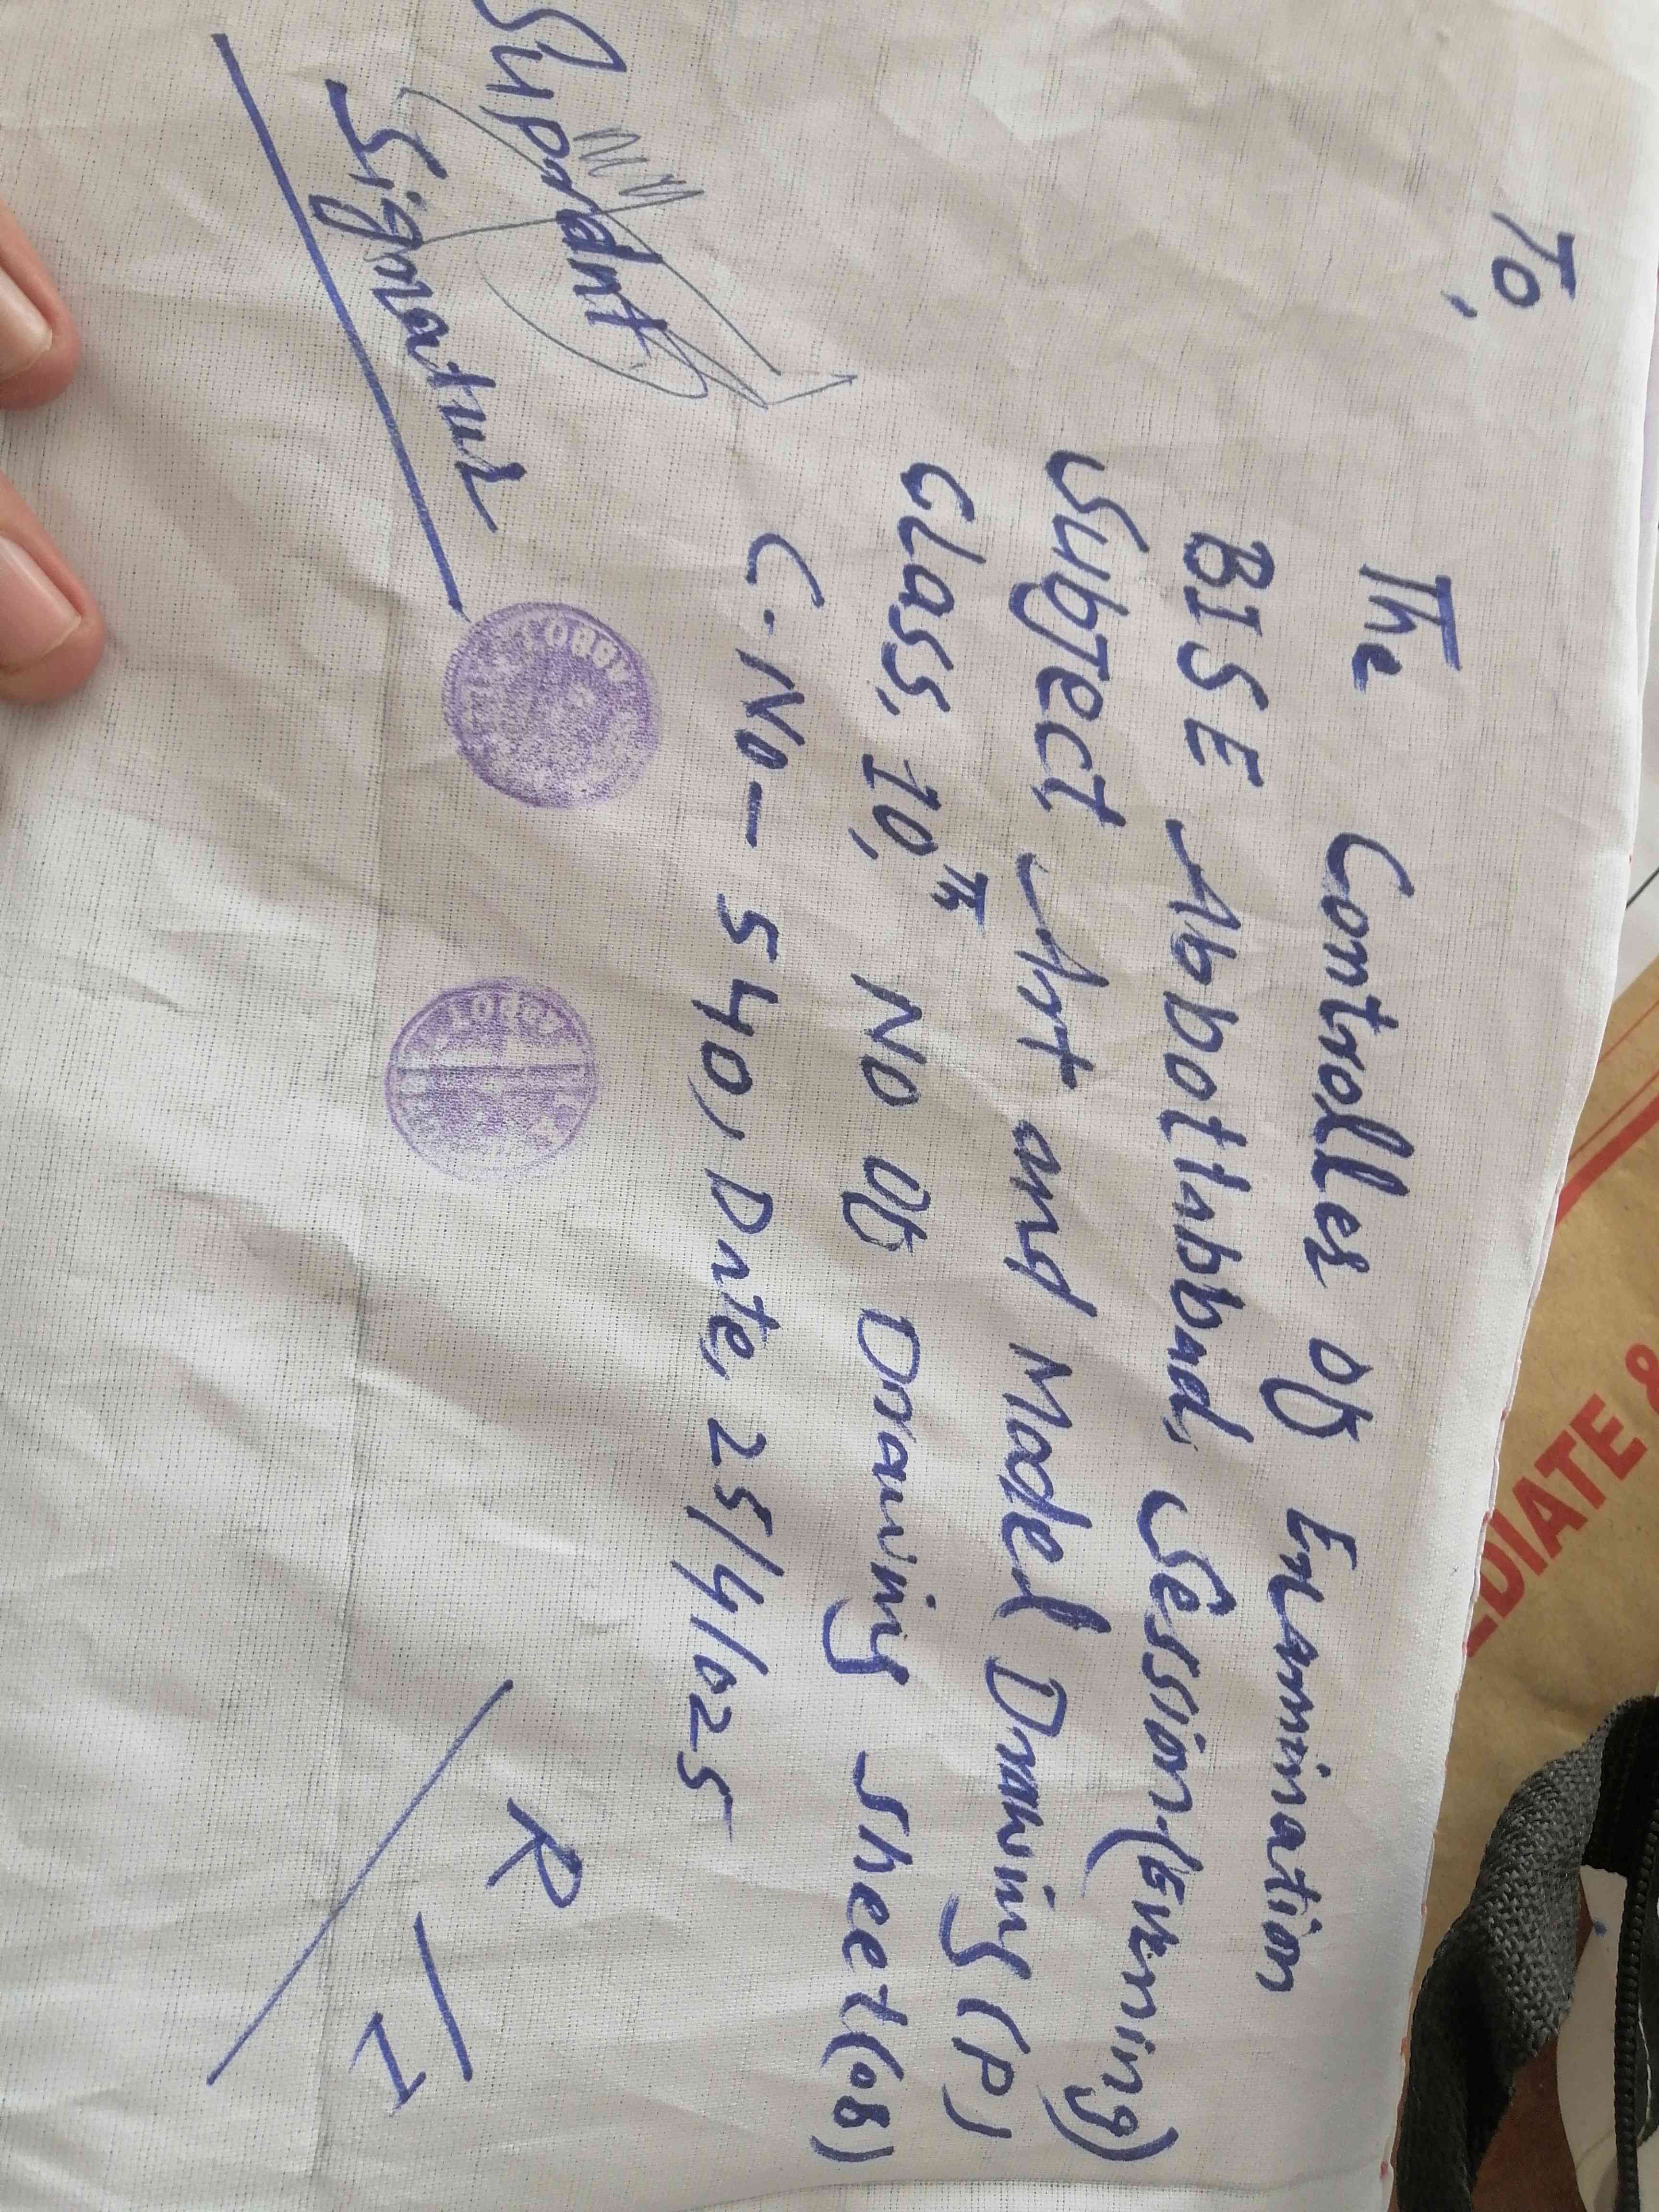 To,
The Controller Of Examination
BISE Abbottabbad, Session (Evening)
Subject Art and Model Drawing (P)
Class, 10,th No Of Drawing Sheet (08)
C.No- 540, Date, 25/4/025
Suprdnt
Signatur
R
EDIATE &